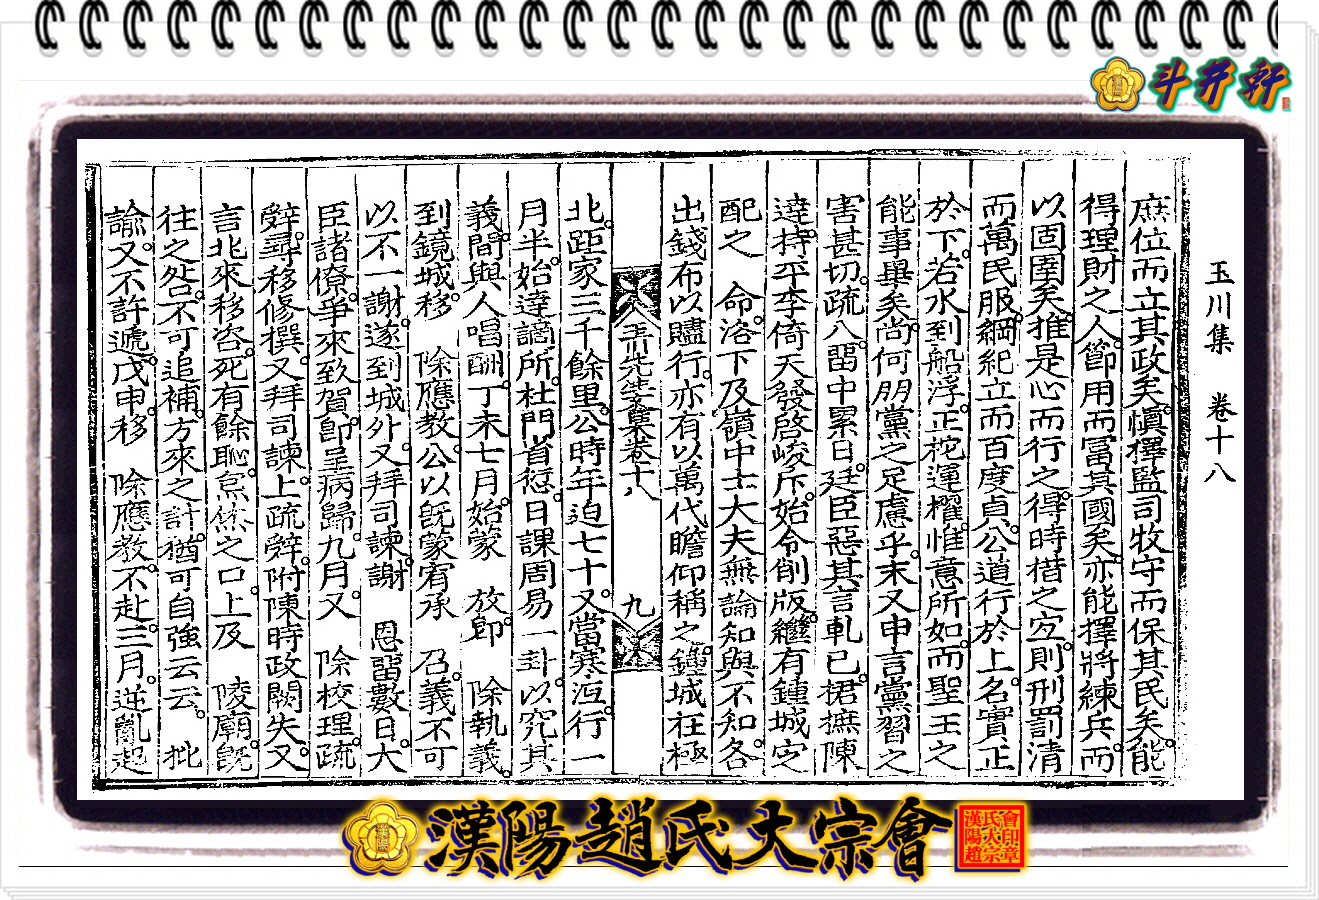 斗井軒
玉川集 卷十八
庶位而立其政矣愼擇監司牧守而保其民矣能
得理財之人節用而富其國矣亦能擇將練兵而
以固圉矣推是心而行之得時措之宜則刑罰清
而萬民服綱紀立而百度貞公道行於上名實正
於下若水到船浮正柁運櫂惟意所如而聖王之
能事畢矣尚何朋黨之足慮乎末又申言黨習之
害甚切疏八留中累日廷臣惡其言軋已捃摭陳
達持平李倚天發啓峻斥始令削版繼有鍾城定
配之 命洛下及嶺中士大夫無論知與不知各
出錢布以贐行亦有以萬代瞻仰稱之鍾城在極
玉川先生文集卷十八 九
北距家三千餘里公時年迫七十又當寒沍行一
月半始達謫所杜門省愆日課周易一卦以究其
義間與人唱酬丁未七月始蒙 放卽 除執義
到鏡城移 除應敎公以旣蒙宥承 召義不可
以不一謝遂到城外又拜司諫謝 恩留數日大
臣諸僚爭來致賀卽呈病歸九月又 除校理疏
辤尋移修撰又拜司諫上疏辤附陳時政闕失又
言北來移咨死有餘恥烹炰之口上及 陵廟旣
往之咎不可追補方來之計猶可自強云云 批
諭又不許遞戊申移 除應敎不赴三月逆亂起
漢陽趙氏大宗會
漢陽趙氏大宗會印章